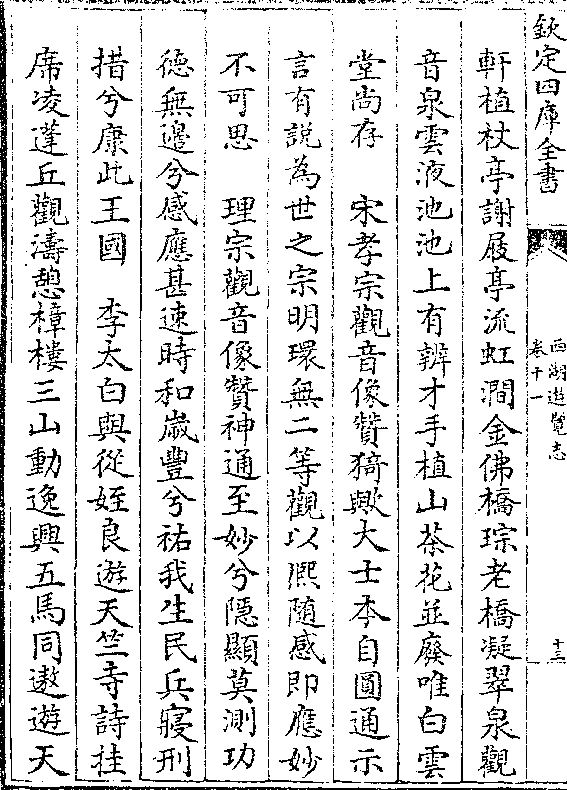 欽定四庫全書
西湖遊覽志
卷十一
十三
軒植杖亭謝屐亭流虹澗金佛橋琮老橋凝翠泉觀
音泉雲液池池上有辨才手植山茶花並廢唯白雲
堂尚存　宋孝宗觀音像贊猗歟大士本自圓通示
言有說為世之宗明環無二等觀以熈隨感即應妙
不可思　理宗觀音像贊神通至妙兮隱顯莫測功
徳無邊兮感應甚速時和嵗豐兮祐我生民兵寢刑
措兮康此王國　李太白與從姪良遊天竺寺詩挂
席凌蓬丘觀濤憩樟樓三山動逸興五馬同遨遊天